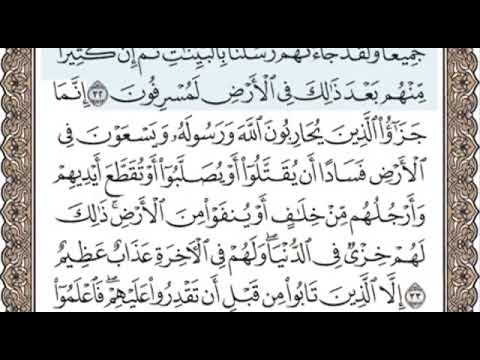 جَمِيعًا وَلَقَدْ جَآءَتْهُمْ رُسُلُنَا بِالْبَيِّنَاتِ ثُمَّ إِنَّ كَثِيرًا
مِّنْهُم بَعْدَ ذَٰلِكَ فِي الْأَرْضِ لَمُسْرِفُونَ ٣٢ إِنَّمَا
جَزَٰٓؤُا۟ الَّذِينَ يُحَارِبُونَ اللَّهَ وَرَسُولَهُۥ وَيَسْعَوْنَ فِي
الْأَرْضِ فَسَادًا أَن يُقَتَّلُوٓا۟ أَوْ يُصَلَّبُوٓا۟ أَوْ تُقَطَّعَ أَيْدِيهِمْ
وَأَرْجُلُهُم مِّنْ خِلَٰفٍ أَوْ يُنفَوْا۟ مِنَ الْأَرْضِ ۚ ذَٰلِكَ
لَهُمْ خِزْيٌ فِي الدُّنْيَا ۖ وَلَهُمْ فِي الْآخِرَةِ عَذَابٌ عَظِيمٌ
٣٣ إِلَّا الَّذِينَ تَابُوا۟ مِن قَبْلِ أَن تَقْدِرُوا۟ عَلَيْهِمْ ۖ فَاعْلَمُوٓا۟